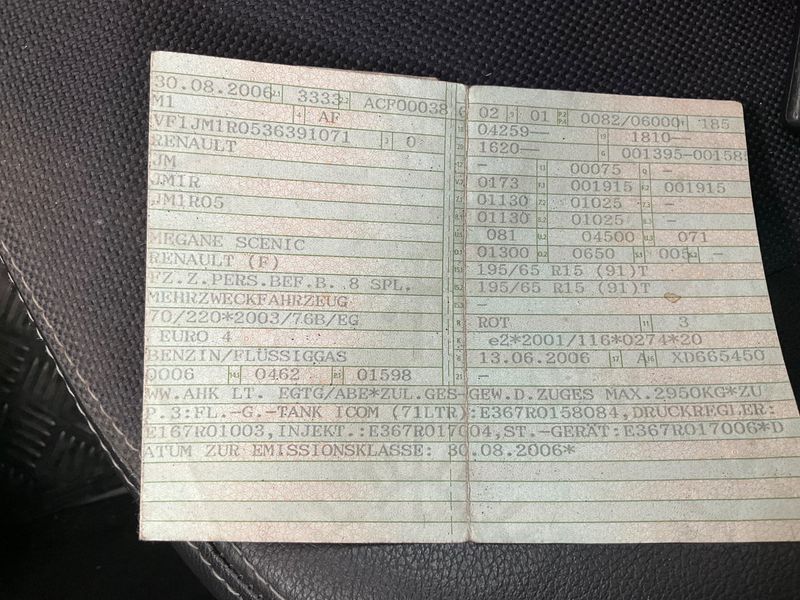 30.08.2006 2.1 3333 2.2 ACF00038 6
M1 4 AF
VF1JM1R0536391071 3 0
RENAULT
JM
JM1R
JM1R05
MEGANE SCENIC
RENAULT (F)
FZ.Z.PERS.BEF.B. 8 SPL.
MEHRZWECKFAHRZEUG
70/220*2003/76B/EG
EURO 4
BENZIN/FLÜSSIGGAS
0006 14.1 0462 P.1 01598
02 9 01 P.2 P.4 0082/06000 T 185
18 04259— 19 1810—
20 1620— G 001395-00158
12 - 13 00075 Q -
V.7 0173 F.1 001915 F.2 001915
7.1 01130 7.2 01025 7.3 -
8.1 01130 8.2 01025 8.3 -
U.1 081 U.2 04500 U.3 071
O.1 01300 O.2 0650 S.1 005 S.2 -
15.1 195/65 R15 (91)T
15.2 195/65 R15 (91)T
15.3 -
R ROT 11 3
K e2*2001/116*0274*20
6 13.06.2006 17 A 16 XD665450
21 -
WW.AHK LT. EGTG/ABE*ZUL.GES-GEW.D.ZUGES MAX.2950KG*ZU
P.3:FL.-G.-TANK ICOM (71LTR):E367R0158084,DRUCKREGLER:
E167R01003,INJEKT.:E367R017004,ST.-GERÄT:E367R017006*D
ATUM ZUR EMISSIONSKLASSE: 30.08.2006*